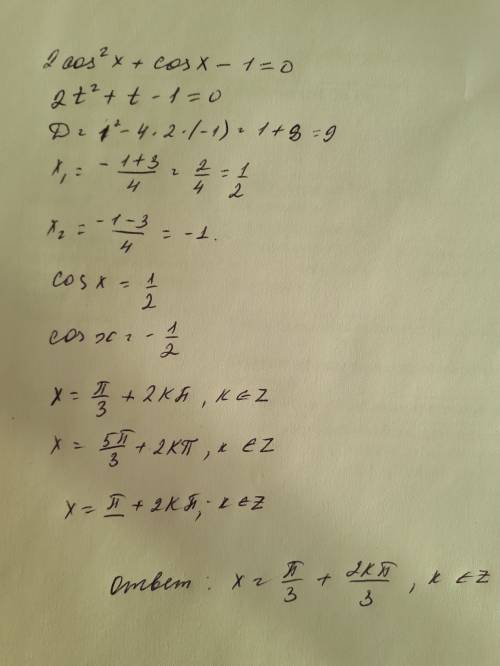 2cos²x + cosx - 1 = 0
2t² + t - 1 = 0
D = 1² - 4·2·(-1) = 1 + 8 = 9
x₁ = -1+3/4 = 2/4 = 1/2
x₂ = -1-3/4 = -1.
cosx = 1/2
cosx = -1/2
x = π/3 + 2kπ, k ∈ Z
x = 5π/3 + 2kπ, k ∈ Z
x = π + 2kπ, k ∈ Z
Ответ: x = π/3 + 2kπ/3, k ∈ Z